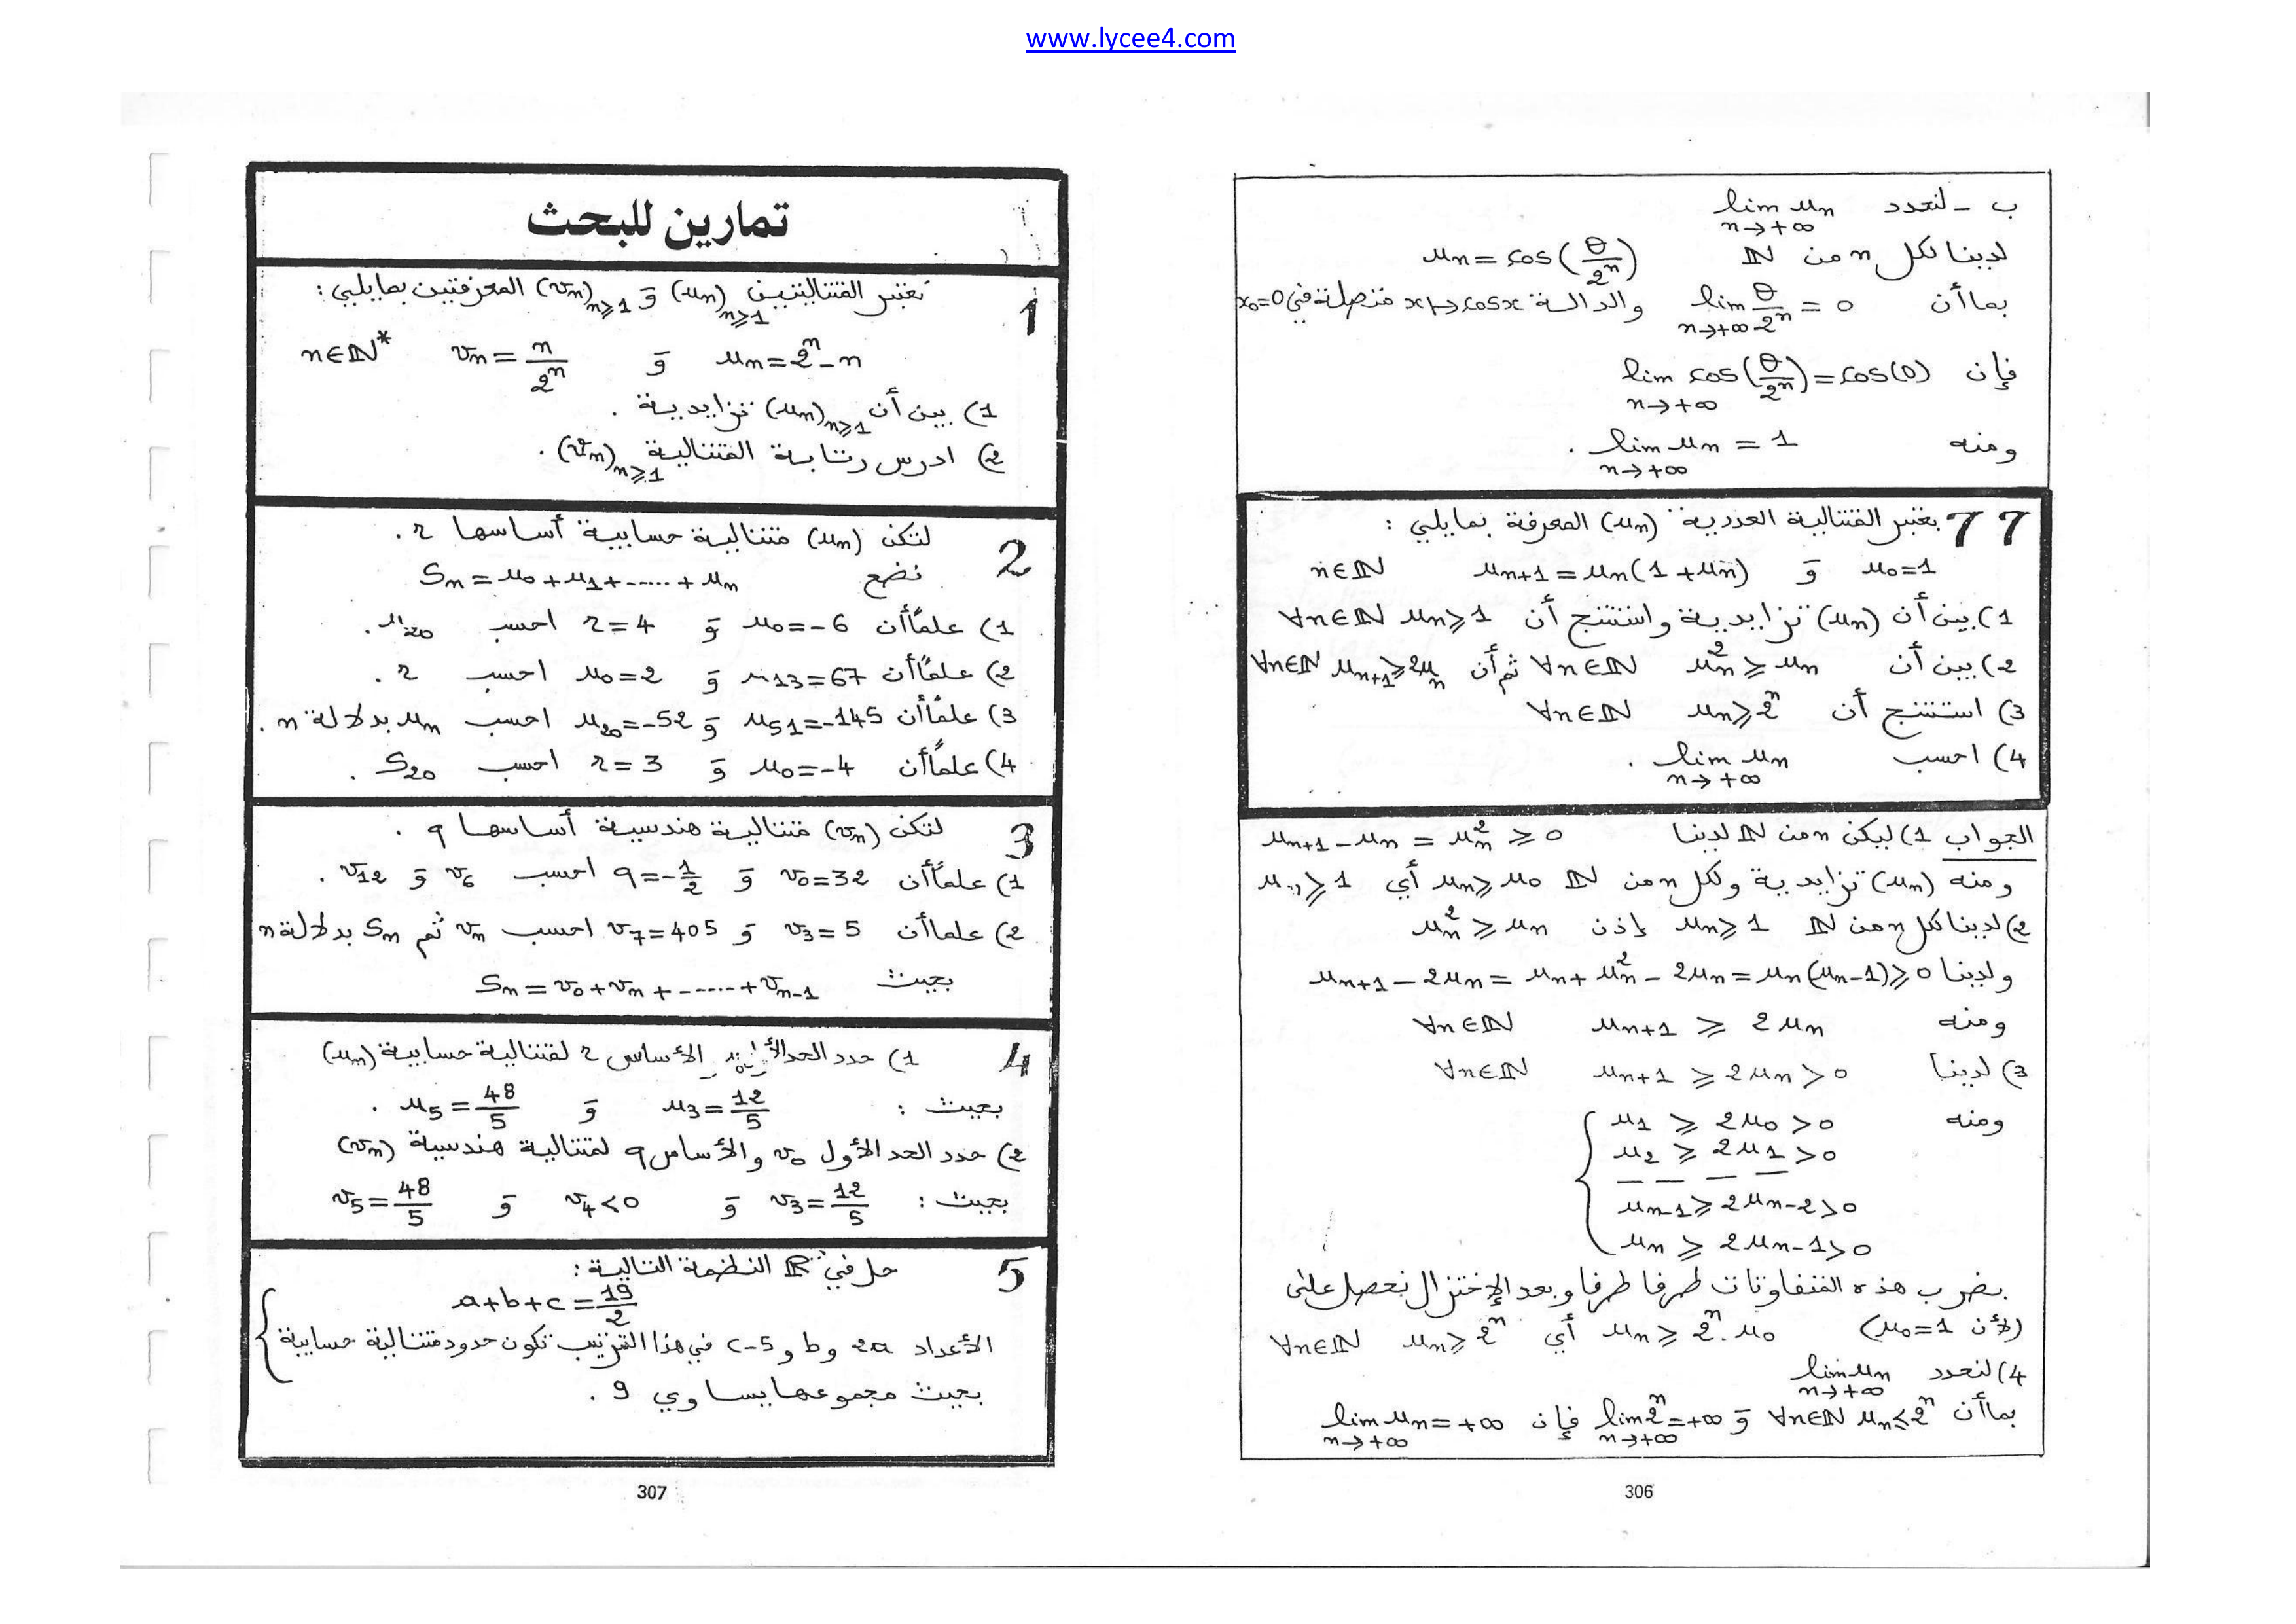 www.lycee4.com
ب - لنحدد lim un n→+∞
لدينا لكل n من ℕ un = cos(θ/2^n)
بما أن lim θ/2^n = 0 n→+∞ والدالة x↦cosx متصلة في x0=0
فإن lim cos(θ/2^n) = cos(0) n→+∞
ومنه lim un = 1 n→+∞ .
77 نعتبر المتتالية العددية (un) المعرفة بمايلي :
u0=1 و un+1 = un(1+un) n∈ℕ
1) بين أن (un) تزايدية واستنتج أن ∀n∈ℕ un⩾1
2) بين أن un² ⩾ un ∀n∈ℕ ثم أن ∀n∈ℕ un+1⩾2un
3) استنتج أن un⩾2^n ∀n∈ℕ
4) احسب lim un n→+∞ .
الجواب 1) ليكن n من ℕ لدينا un+1 - un = un² ⩾ 0
ومنه (un) تزايدية ولكل n من ℕ un⩾u0 أي un⩾1
2) لدينا لكل n من ℕ un⩾1 إذن un² ⩾ un
ولدينا un+1 - 2un = un + un² - 2un = un(un-1)⩾0
ومنه un+1 ⩾ 2un ∀n∈ℕ
3) لدينا un+1 ⩾ 2un > 0 ∀n∈ℕ
ومنه u1 ⩾ 2u0 > 0
u2 ⩾ 2u1 > 0
— — — —
un-1 ⩾ 2un-2 > 0
un ⩾ 2un-1 > 0
بضرب هذه المتفاوتات طرفا طرفا وبعد الإختزال نحصل على
un ⩾ 2^n.u0 أي un⩾2^n ∀n∈ℕ (لأن u0=1)
4) لنحدد lim un n→+∞
بما أن ∀n∈ℕ un⩽2^n و lim 2^n = +∞ n→+∞ فإن lim un = +∞ n→+∞
306
تمارين للبحث
1 نعتبر المتتاليتين (un)n⩾1 و (vn)n⩾1 المعرفتين بمايلي :
un = 2^n - n و vn = n/2^n n∈ℕ*
1) بين أن (un)n⩾1 تزايدية .
2) ادرس رتابة المتتالية (vn)n⩾1 .
2 لتكن (un) متتالية حسابية أساسها r .
نضع Sn = u0 + u1 + ..... + un
1) علماً أن u0 = -6 و r = 4 احسب u20 .
2) علماً أن u13 = 67 و u0 = 2 احسب r .
3) علماً أن u51 = -145 و u20 = -52 احسب un بدلالة n .
4) علماً أن u0 = -4 و r = 3 احسب S20 .
3 لتكن (vn) متتالية هندسية أساسها q .
1) علماً أن v0 = 32 و q = -1/2 احسب v6 و v12 .
2) علما أن v3 = 5 و v7 = 405 احسب vn ثم Sn بدلالة n
بحيث Sn = v0 + vn + ...... + vn-1
4 1) حدد الحد الأول والأساس r لمتتالية حسابية (un)
بحيث : u3 = 12/5 و u5 = 48/5 .
2) حدد الحد الأول v0 والأساس q لمتتالية هندسية (vn)
بحيث : v3 = 12/5 و v4 < 0 و v5 = 48/5
5 حل في ℝ النظمة التالية :
a+b+c = 19/2
الأعداد 2a و b و c-5 في هذا الترتيب تكون حدود متتالية حسابية
بحيث مجموعها يساوي 9 .
307